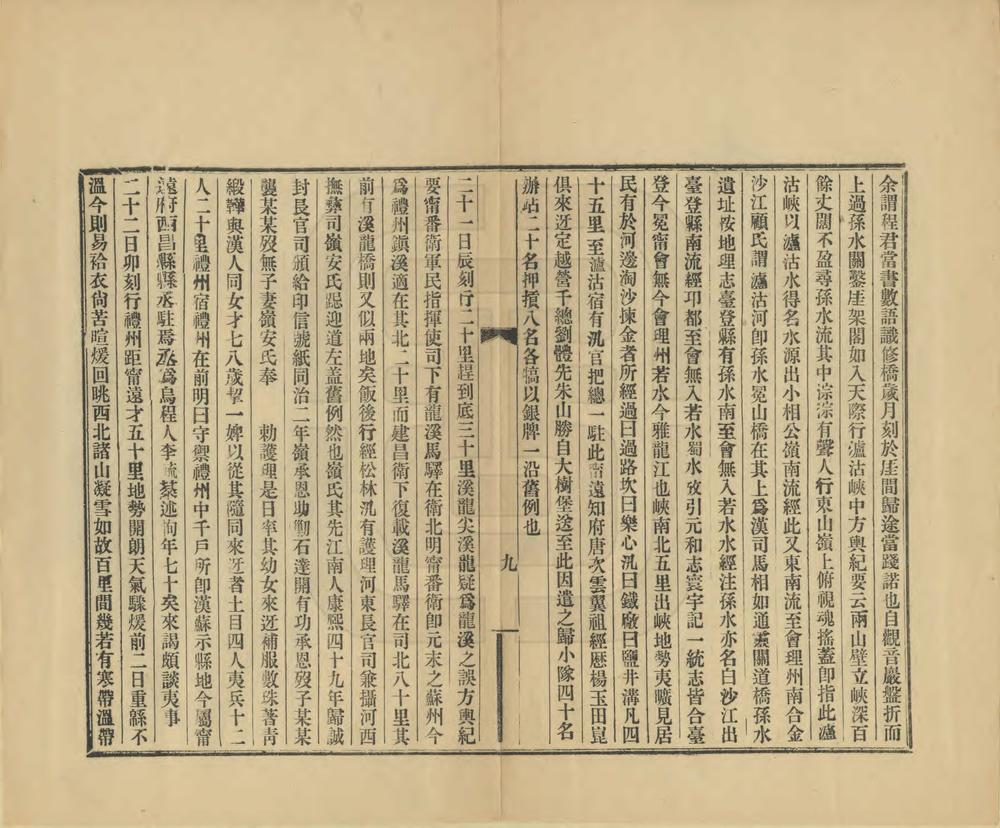 余謂程君當書數語識修橋歲月刻於厓間歸途當踐諾也自觀音巖盤折而
上過孫水關鑿厓架閣如入天際行瀘沽峽中方輿紀要云兩山壁立峽深百
餘丈闊不盈尋孫水流其中淙淙有聲人行東山嶺上俯視魂搖蓋卽指此瀘
沽峽以瀘沽水得名水源出小相公嶺南流經此又東南流至會理州南合金
沙江顧氏謂瀘沽河卽孫水冕山橋在其上爲漢司馬相如通蠻關道橋孫水
遺址按地理志臺登縣有孫水南至會無入若水水經注孫水亦名白沙江出
臺登縣南流經邛都至會無入若水蜀水攷引元和志寰宇記一統志皆合臺
登今冕甯會無今會理州若水今雅龍江也峽南北五里出峽地勢夷曠見居
民有於河邊淘沙揀金者所經過曰過路坎曰樂心汛曰鐵廠曰鹽井溝凡四
十五里至瀘沽宿有汛官把總一駐此甯遠知府唐次雲翼祖經厯楊玉田崑
俱來迓定越營千總劉體先朱山勝自大樹堡送至此因遣之歸小隊四十名
辦站二十名押摃八名各犒以銀牌一沿舊例也
九
二十一日辰刻行二十里趕到底三十里溪龍尖溪龍疑爲龍溪之誤方輿紀
要甯番衛軍民指揮使司下有龍溪馬驛在衛北明甯番衛卽元末之蘇州今
爲禮州鎭溪適在其北二十里而建昌衛下復載溪龍馬驛在司北八十里其
前有溪龍橋則又似兩地矣飯後行經松林汛有護理河東長官司兼攝河西
撫彝司嶺安氏跽迎道左蓋舊例然也嶺氏其先江南人康熙四十九年歸誠
封長官司頒給印信號紙同治二年嶺承恩助勦石逹開有功承恩歿子某某
襲某某歿無子妻嶺安氏奉　勅護理是日率其幼女來迓補服數珠著靑
緞鞾與漢人同女才七八歲挈一婢以從其隨同來迓者土目四人夷兵十二
人二十里禮州宿禮州在前明曰守禦禮州中千戶所卽漢蘇示縣地今屬甯
遠府西昌縣縣丞駐焉丞爲烏程人李毓棻述洵年七十矣來謁頗談夷事
二十二日卯刻行禮州距甯遠才五十里地勢開朗天氣驟煖前二日重緜不
溫今則易袷衣尙苦暄煖回眺西北諸山凝雪如故百里間幾若有寒帶溫帶